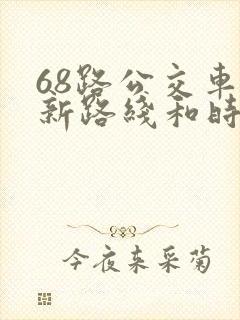 68路公交车
新路线和时
今夜来采菊